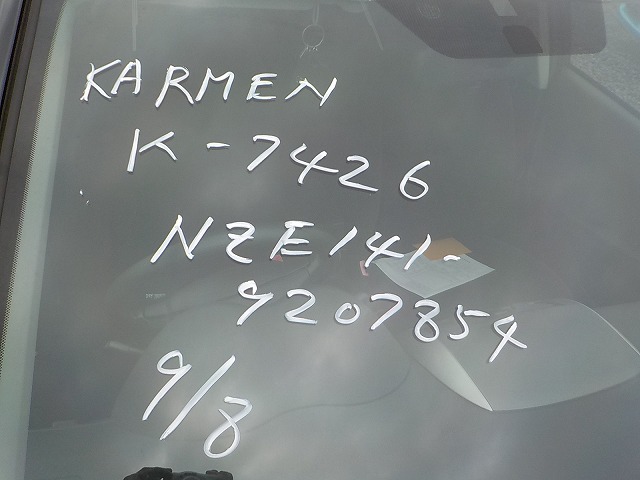 KARMEN
K-7426
NZE141-
9207854
9/8